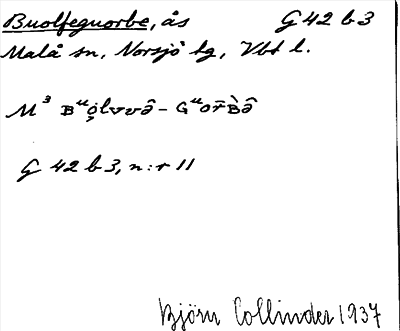 Buolfeguorbe, ås G 42 b 3
Malå sn, Norsjö tg, Vbt l.
M³ Bᵘo̤lvvə̂ - Gᵘor̄B̀ə̂
G 42 b 3, n:r 11
Björn Collinder 1937